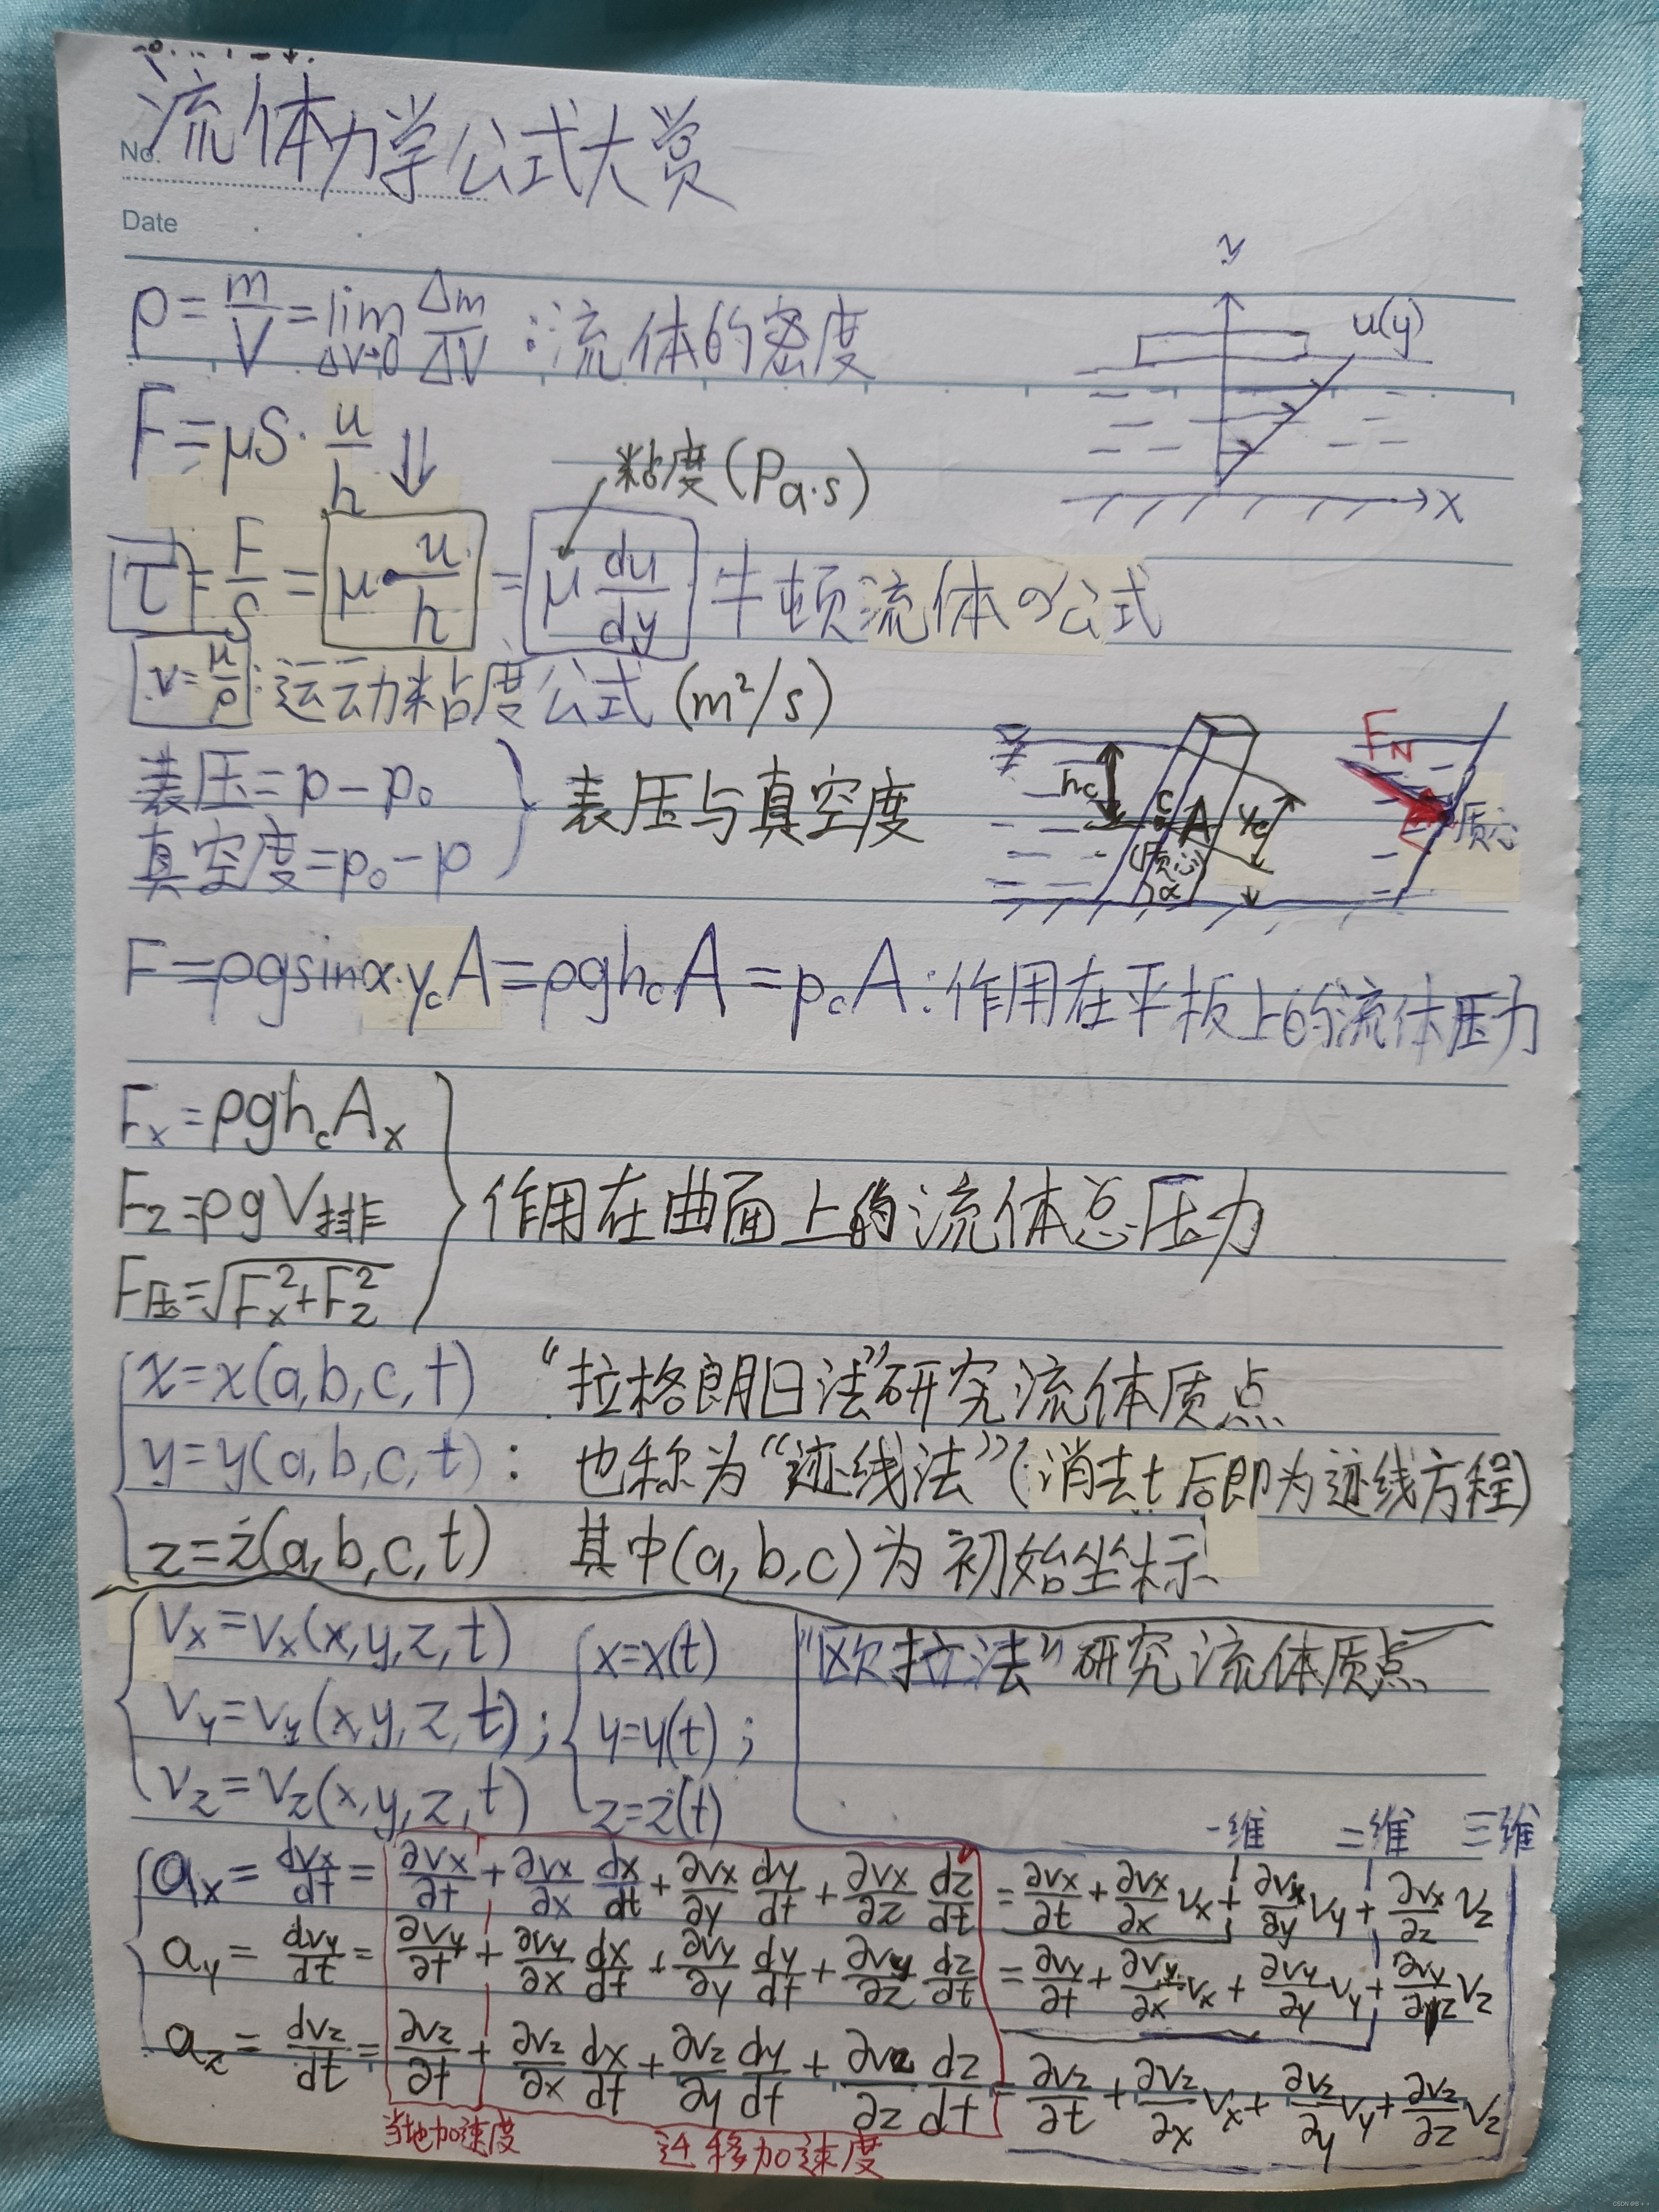 流体力学公式大赏
No.
Date
ρ=m/V=lim ΔV→0 Δm/ΔV:流体的密度
y
u(y)
x
F=μS·u/h ⇓
粘度(Pa·s)
τ=F/S=μ·u/h=μ du/dy 牛顿流体の公式
ν=μ/ρ:运动粘度公式(m²/s)
表压=p-p₀
真空度=p₀-p
表压与真空度
hc
C
A
yc
(质心)
α
FN
质心
F=ρgsinα·ycA=ρghcA=pcA:作用在平板上的流体压力
Fx=ρghcAx
Fz=ρgV排
F压=√(Fx²+Fz²)
作用在曲面上的流体总压力
x=x(a,b,c,t) “拉格朗日法”研究流体质点
y=y(a,b,c,t): 也称为“迹线法”(消去t后即为迹线方程)
z=z(a,b,c,t) 其中(a,b,c)为初始坐标
vx=vx(x,y,z,t) x=x(t) “欧拉法”研究流体质点
vy=vy(x,y,z,t); y=y(t);
vz=vz(x,y,z,t) z=z(t)
一维 二维 三维
ax=dvx/dt=∂vx/∂t+∂vx/∂x dx/dt+∂vx/∂y dy/dt+∂vx/∂z dz/dt=∂vx/∂t+∂vx/∂x vx+∂vx/∂y vy+∂vx/∂z vz
ay=dvy/dt=∂vy/∂t+∂vy/∂x dx/dt+∂vy/∂y dy/dt+∂vy/∂z dz/dt=∂vy/∂t+∂vy/∂x vx+∂vy/∂y vy+∂vy/∂z vz
az=dvz/dt=∂vz/∂t+∂vz/∂x dx/dt+∂vz/∂y dy/dt+∂vz/∂z dz/dt=∂vz/∂t+∂vz/∂x vx+∂vz/∂y vy+∂vz/∂z vz
当地加速度 迁移加速度